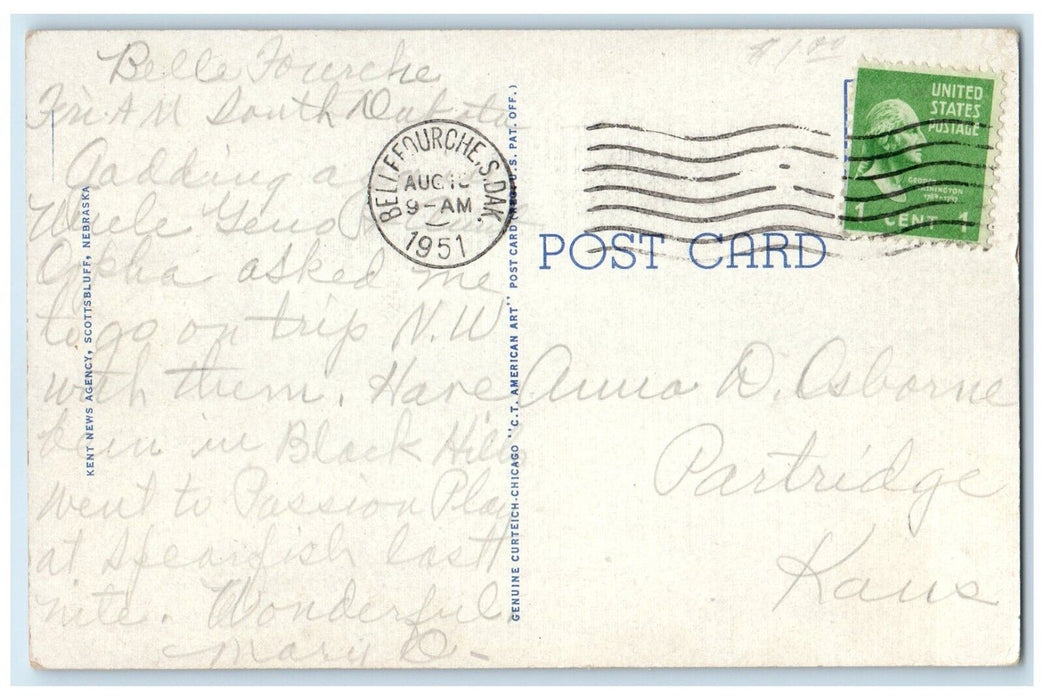 Belle Fourche
Fri A M South Dakota
Gadding
Uncle
Orpha asked me
to go on trip N.W
with them. Have
been in Black Hills
went to Passion Play
at Spearfish last
nite. Wonderful.
Mary O-
KENT NEWS AGENCY, SCOTTSBLUFF, NEBRASKA
GENUINE CURTEICH-CHICAGO "C.T. AMERICAN ART" POST CARD (REG. U.S. PAT. OFF.)
BELLE FOURCHE, S.DAK.
AUG
9-AM
1951
$1.00
UNITED
STATES
POSTAGE
GEORGE
WASHINGTON
1 CENT 1
POST CARD
Anna D. Osborne
Partridge
Kans